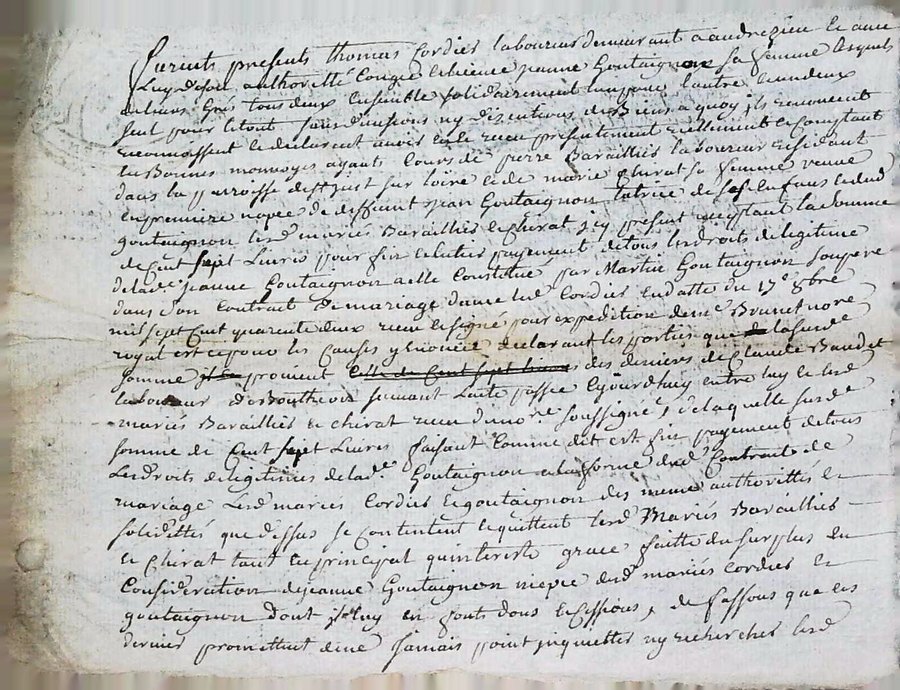 furents presents thomas Cordier laboureur demeurant a andrezieu et avec
luy deson authoritté Congée et licence jeanne Goutaignon sa femme lesquels
Grés tous deux Ensemble solidairement l'un pour l'autre et un deux
seul pour letout sans divisions ny discutions de Biens a quoy ils renoncent
reconnoissent et déclarent avoir reçeu présentement reellement et Comptant
En Bonnes monnoyes ayants Cours de pierre Baraillier laboureur résidant
dans la parroisse de st just sur loire et de marie Chirat sa femme veuve
En première nopce de deffunt jean Goutaignon tutrice de ses Enfans et dud
goutaignon lesd mariés Baraillier et Chirat icy présent acceptant la somme
de Cent sept Livres pour fin et entier payement de tous les droits de légitime
de lad. jeanne Goutaignon a elle Constitué par Martin Goutaignon son père
dans son Contrat de mariage d'avec led Cordier En datte du 17e 8bre
mil sept Cent quarente deux reçeu et signé pour expedition de me Brunel nore
royal est ce pour les Causes y Enoncée déclarant les parties que la susde
somme provient celle de Cent sept livres des deniers de Claude Baudet
laboureur de Bouthéon suivant l'acte passée Cejourdhuy entre luy et lesd
mariés Baraillier et Chirat reçeu du nore soussigné, de laquelle susde
somme de Cent sept Livres faisant Comme dit est fin payement de tous
Les droits de légitimes de lade Goutaignon a la forme dud Contrat de
mariage Lesd mariés Cordier et goutaignon des meme authorittés et
solidittés que dessus se Contentent et quittent lesd Mariés Baraillier
et Chirat tant En principal qu'interists grace faitte du surplus En
Considération de jeanne Goutaignon niepce desd mariés Cordier et
goutaignon dont ils luy en font dons et Cessions, de fassons que les
dernier promettent de ne jamais point inquietter ny rechercher lesd